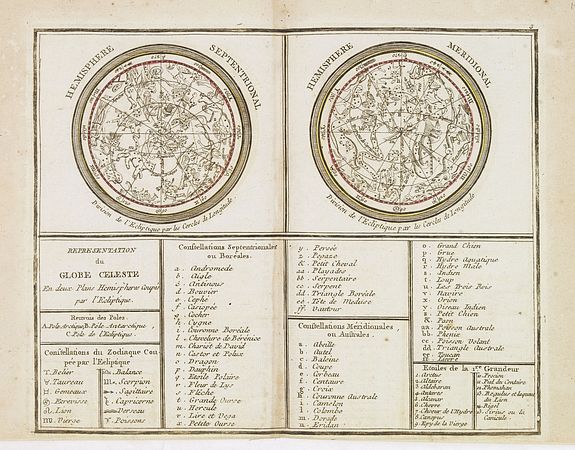 3
HEMISPHERE SEPTENTRIONAL
HEMISPHERE MERIDIONAL
Division de l'Ecliptique par les Cercles de Longitude
Division de l'Ecliptique par les Cercles de Longitude
REPRESENTATION
du
GLOBE CELESTE
En deux Plans Hemispheres Coupés
par l'Ecliptique.
Renvois des Poles.
A. Pole Arctique, B. Pole Antarctique
C. Pole de l'Ecliptique.
Constellations du Zodiaque Cou
pée par l'Ecliptique
♈ Belier
♉ Taureau
♊ Gemeaux
♋ Ecrevisse
♌ Lion
♍ Vierge
♎ Balance
♏ Scorpion
♐ Sagittaire
♑ Capricorne
♒ Verseau
♓ Poissons
Constellations Septentrionales
ou Boréales.
a. Andromede
b. Aigle
c. Antinous
d. Bouvier
e. Cephe
f. Casiopée
g. Cocher
h. Cygne
i. Couronne Boréale
l. Chevelure de Bérenice
m. Chariot de David
n. Castor et Polux
o. Dragon
p. Dauphin
q. Etoile Polaire
r. Fleur de Lys
s. Flêche
t. Grande Ourse
u. Hercule
v. Lire et Vega
x. Petite Ourse
y. Persée
z. Pegaze
&. Petit Cheval
aa. Playades
bb. Serpentaire
cc. Serpent
dd. Triangle Boréale
ee. Tête de Meduse
ff. Vautour
Constellations Meridionales,
ou Australes.
a. Abeille
b. Autel
c. Baleine
d. Coupe
e. Corbeau
f. Centaure
g. Croix
h. Couronne Australe
i. Camelon
l. Colombe
m. Dorade
n. Eridan
o. Grand Chien
p. Grue
q. Hydre Aquatique
r. Hydre Male
s. Indien
t. Loup
u. Les Trois Rois
v. Navire
x. Orion
y. Oiseau Indien
z. Petit Chien
&. Paon
aa. Poisson Australe
bb. Phenix
cc. Poisson Volant
dd. Triangle Australe
ee. Toucan
ff. Lievre
Etoiles de la 1.re Grandeur
1. Arctus
2. Altaire
3. Aldebaran
4. Antares
5. Akarnar
6. Chevre
7. Choeur de l'Hydre
8. Canopus
9. Epy de la Vierge
10. Procion
11. Pied du Centaure
12. Phomahan
13. Regulus et
du Lion
Rigel
Sirius ou la
Canicule